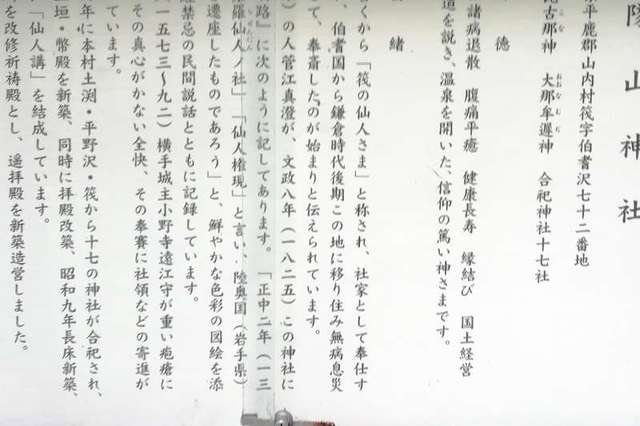 陸山神社
平鹿郡山内村筏字伯耆沢七十二番地
古那神 大那牟遅神 合祀神社十七社
徳
諸病退散 腹痛平癒 健康長寿 縁結び 国土経営
道を説き、温泉を開いた、信仰の篤い神さまです。
緒
くから「筏の仙人さま」と称され、社家として奉仕す
、伯耆国から鎌倉時代後期この地に移り住み無病息災
て、奉斎したのが始まりと伝えられています。
の人菅江真澄が、文政八年（一八二五）この神社に
路』に次のように記してあります。「正中二年（一三
羅仙人ノ社」「仙人権現」と言い、陸奥国（岩手県）
遷座したものであろう」と、鮮やかな色彩の図絵を添
禁忌の民間説話とともに記録しています。
一五七三〜九二）横手城主小野寺遠江守が重い疱瘡に
その真心がかない全快、その奉賽に社領などの寄進が
ています。
年に本村土渕・平野沢・筏から十七の神社が合祀され、
垣・幣殿を新築、同時に拝殿改築、昭和九年長床新築、
「仙人講」を結成しています。
を改修祈祷殿とし、遥拝殿を新築造営しました。